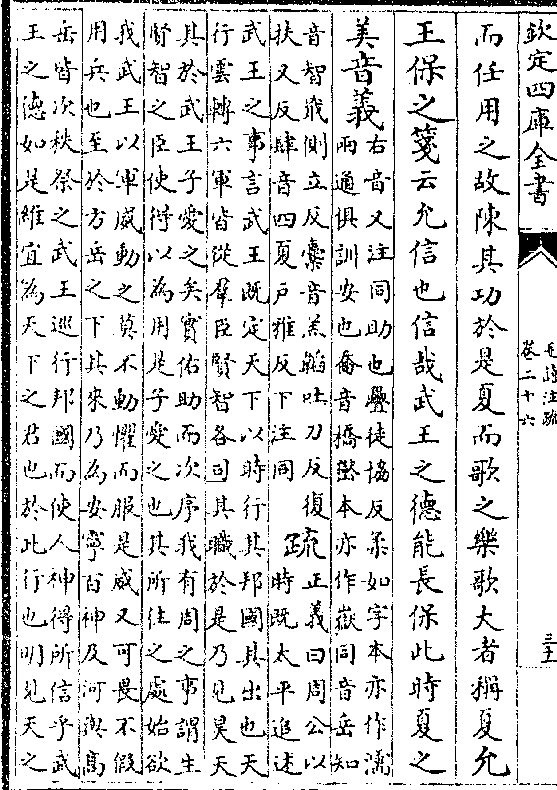 欽定四庫全書
毛詩注疏
卷二十六
三十
而任用之故陳其功於是夏而歌之樂歌大者稱夏允
王保之箋云允信也信哉武王之德能長保此時夏之
美音義
右音又注同助也疊徒協反柔如字本亦作濡
兩通俱訓安也喬音橋嶽本亦作嶽同音岳知
音智戢側立反櫜音羔韜吐刀反復
扶又反肆音四夏戶雅反下注同
疏
正義曰周公以
時既太平追述
武王之事言武王既定天下以時行其邦國其出也天
行雲轉六軍皆從羣臣賢智各司其職於是乃見昊天
其於武王子愛之矣實佑助而次序我有周之事謂生
賢智之臣使得以為用是子愛之也其所往之處始欲
我武王以軍威動之莫不動懼而服是威又可畏不假
用兵也至於方岳之下其來乃為安寧百神及河與高
岳皆次秩祭之武王巡行邦國而使人神得所信乎武
王之德如是維宜為天下之君也於此行也明見天之